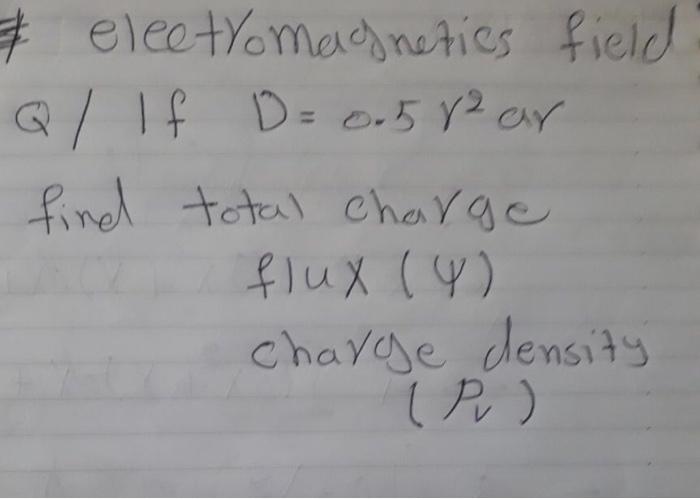 # electromagnetics field
Q/ If D = 0.5 r² ar
find total charge
flux (ψ)
charge density
(Pv)